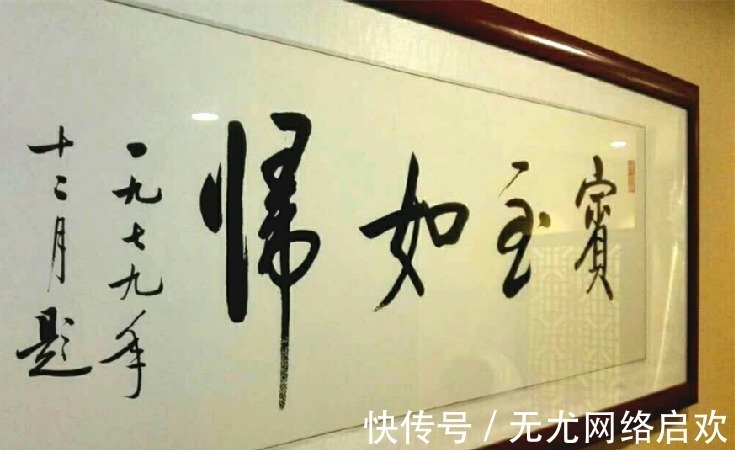 賓至如歸
一九七九年
十二月題
快传号 / 无尤网络启欢